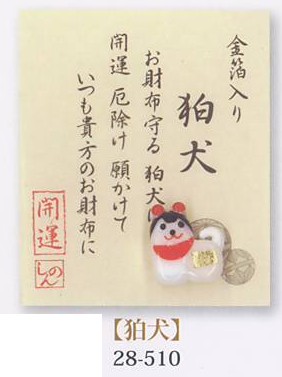 金箔入り
狛犬
お財布守る 狛犬に
開運 厄除け 願かけて
いつも貴方のお財布に
開運
のしん
【狛犬】
28-510